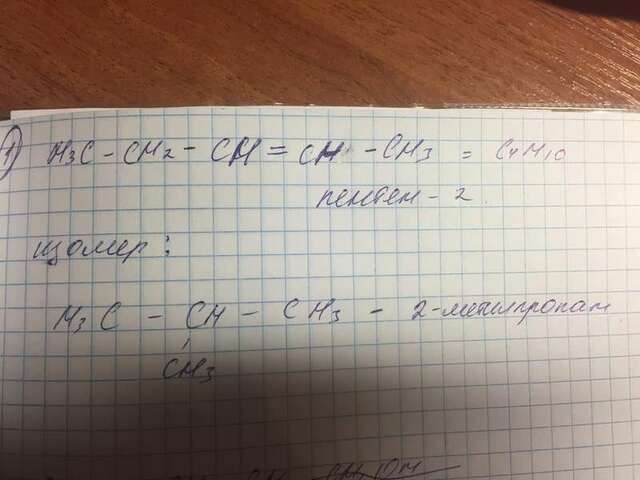 1) H3C - CH2 - CH = CH - CH3 = C4H10
пентен - 2.
изомер:
H3C - CH - CH3 - 2-метилпропан
CH3